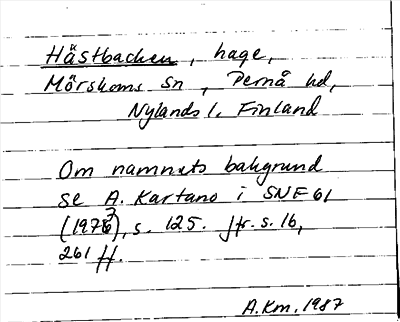 Hästbacken, hage,
Mörskoms sn, Pernå hd,
Nylands l. Finland
Om namnets bakgrund
se A. Kartano i SNF 61
(1973), s. 125. Jfr. s. 16,
261 ff.
A.Km. 1987